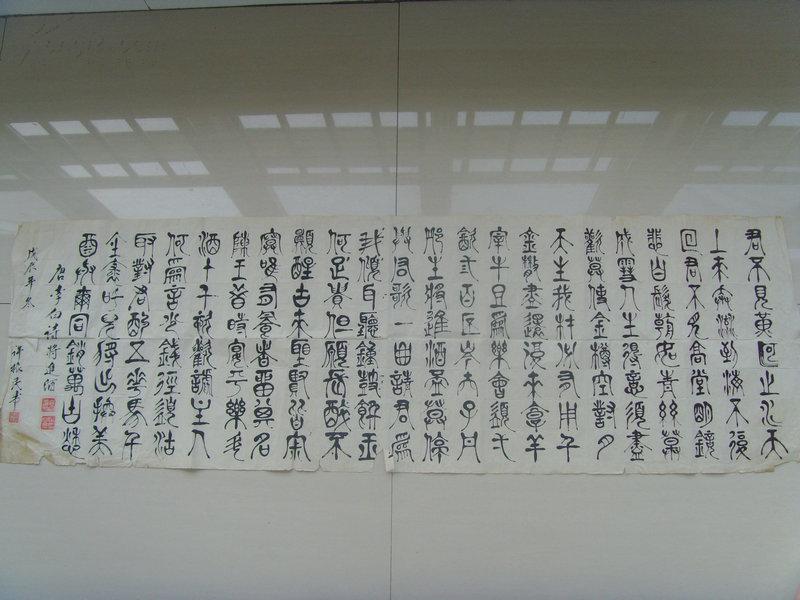 君不見黃河之水天
上來奔流到海不復
回君不見高堂明鏡
悲白髮朝如青絲暮
成雪人生得意須盡
歡莫使金樽空對月
天生我材必有用千
金散盡還復來烹羊
宰牛且為樂會須一
飲三百杯岑夫子丹
邱生將進酒杯莫停
與君歌一曲請君為
我傾耳聽鐘鼓饌玉
何足貴但願長醉不
願醒古來聖賢皆寂
寞唯有飲者留其名
陳王昔時宴平樂斗
酒十千恣歡謔主人
何為言少錢徑須沽
取對君酌五花馬千
金裘呼兒將出換美
酒與爾同銷萬古愁
唐李白詩將進酒
戊辰年冬 許振